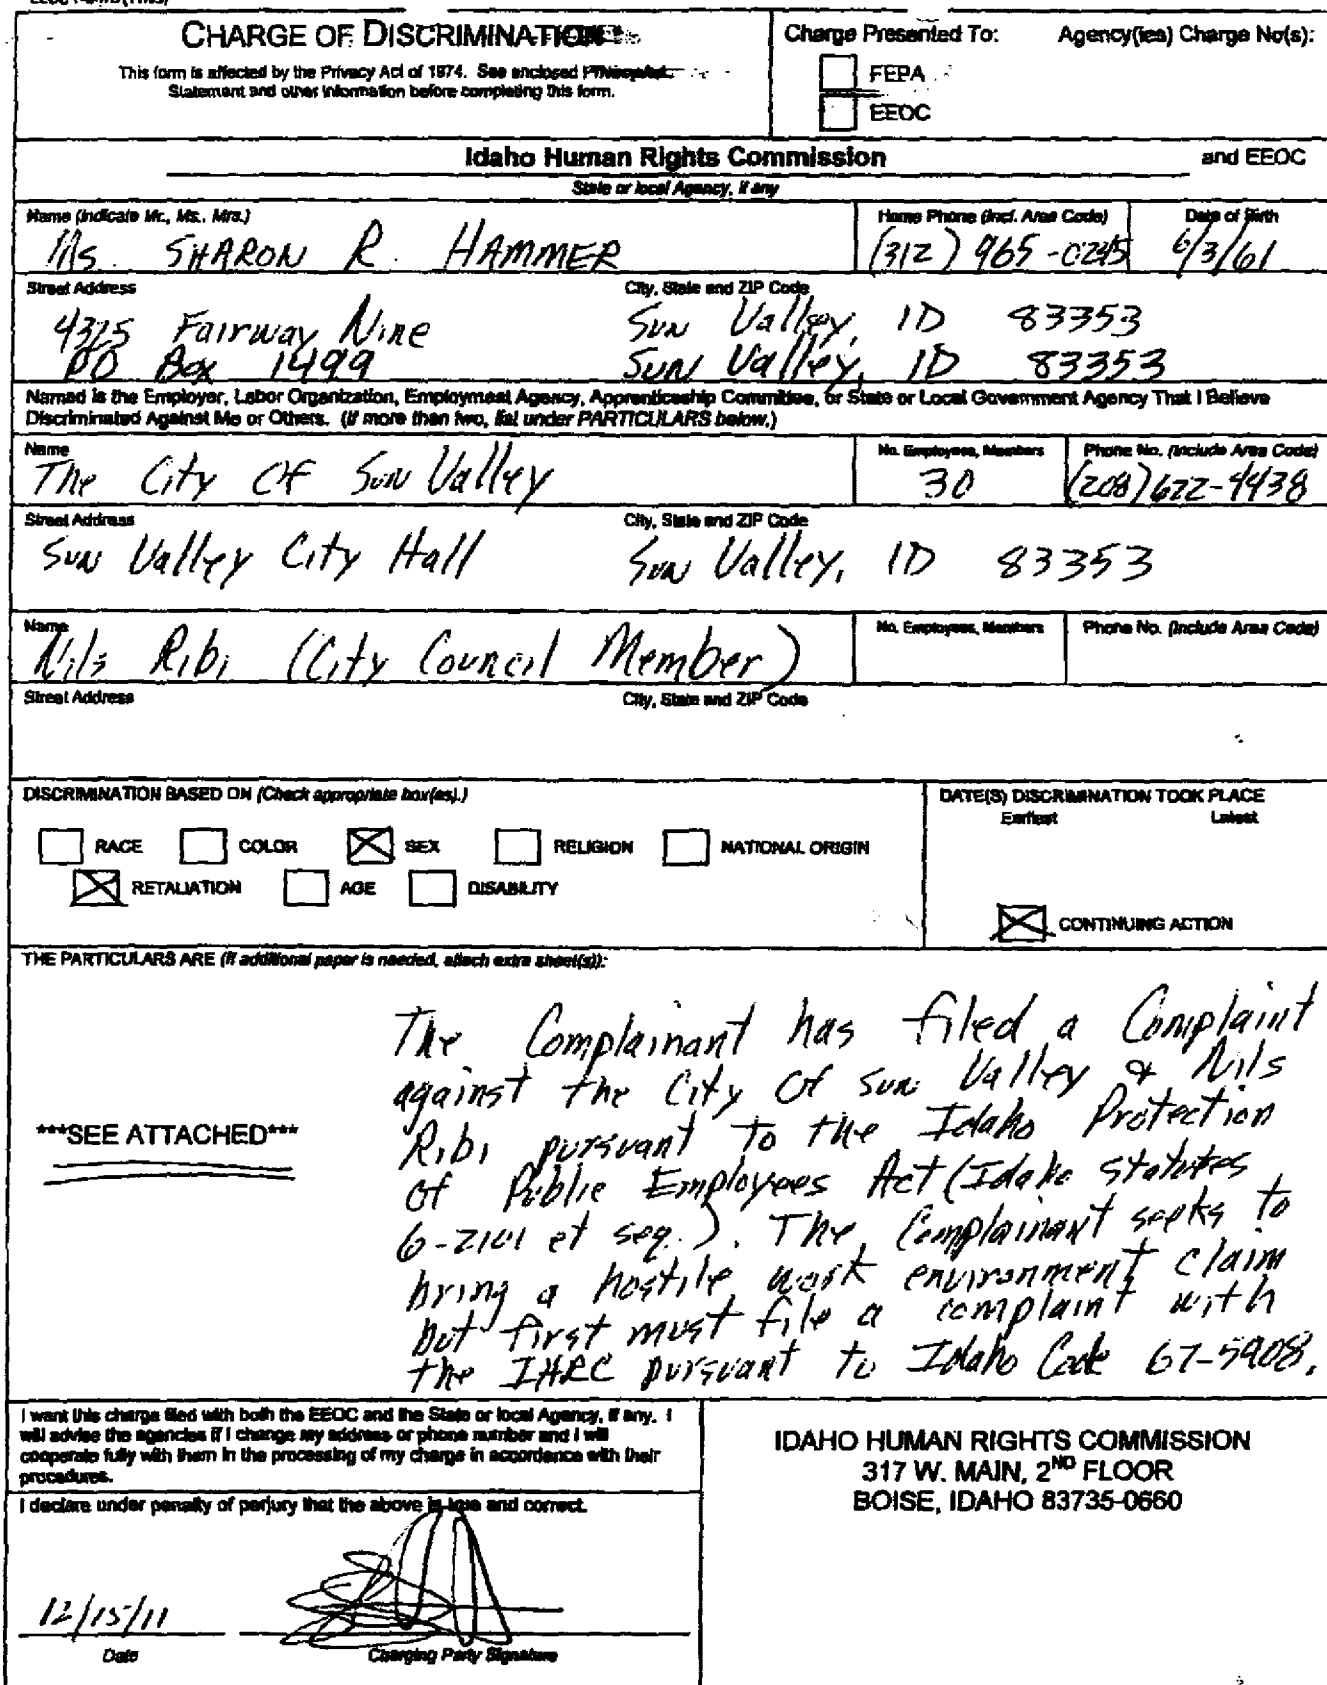 CHARGE OF DISCRIMINATION
This form is affected by the Privacy Act of 1974. See enclosed
Statement and other information before completing this form.
Charge Presented To:
Agency(ies) Charge No(s):
FEPA
EEOC
Idaho Human Rights Commission
and EEOC
State or local Agency, if any
Name (Indicate Mr., Ms., Mrs.)
Home Phone (Incl. Area Code)
Date of Birth
Ms. SHARON R. HAMMER
(312) 965-0245
6/3/61
Street Address
City, State and ZIP Code
4325 Fairway Nine
Sun Valley, ID 83353
PO Box 1499
Sun Valley, ID 83353
Named is the Employer, Labor Organization, Employment Agency, Apprenticeship Committee, or State or Local Government Agency That I Believe
Discriminated Against Me or Others. (If more than two, list under PARTICULARS below.)
Name
No. Employees, Members
Phone No. (Include Area Code)
The City Of Sun Valley
30
(208) 622-4438
Street Address
City, State and ZIP Code
Sun Valley City Hall
Sun Valley, ID 83353
Name
No. Employees, Members
Phone No. (Include Area Code)
Nils Ribi (City Council Member)
Street Address
City, State and ZIP Code
DISCRIMINATION BASED ON (Check appropriate box(es).)
DATE(S) DISCRIMINATION TOOK PLACE
Earliest
Latest
RACE
COLOR
SEX
RELIGION
NATIONAL ORIGIN
RETALIATION
AGE
DISABILITY
CONTINUING ACTION
THE PARTICULARS ARE (If additional paper is needed, attach extra sheet(s)):
***SEE ATTACHED***
The Complainant has filed a Complaint
against the City Of Sun Valley & Nils
Ribi pursuant to the Idaho Protection
of Public Employees Act (Idaho statutes
6-2101 et seq.). The Complainant seeks to
bring a hostile work environment claim
but first must file a complaint with
the IHRC pursuant to Idaho Code 67-5908.
I want this charge filed with both the EEOC and the State or local Agency, if any. I
will advise the agencies if I change my address or phone number and I will
cooperate fully with them in the processing of my charge in accordance with their
procedures.
I declare under penalty of perjury that the above is true and correct.
12/15/11
Date
Charging Party Signature
IDAHO HUMAN RIGHTS COMMISSION
317 W. MAIN, 2ND FLOOR
BOISE, IDAHO 83735-0660